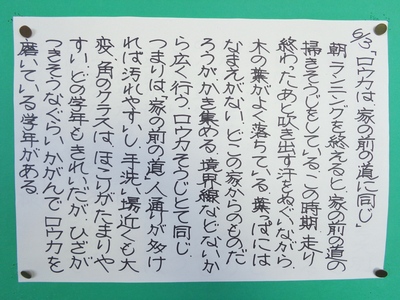 6/3、「ロウカは、家の前の道に同じ」
朝、ランニングを終えると、家の前の道の
掃きそうじをしている。この時期、走り
終わったあと吹き出す汗をぬぐいながら。
木の葉がよく落ちている。葉っぱには
なまえがない。どこの家からのものだ
ろうが、かき集める。境界線などないか
ら広く行う。ロウカそうじとて同じ。
つまりは「家の前の道」人通りが多け
れば汚れやすいし、手洗い場近くも大
変、角のクラスは、ほこりがたまりや
すい。どの学年もきれいだが、ひざが
つきそうなぐらい、かがんで、ロウカを
磨いている学年がある。